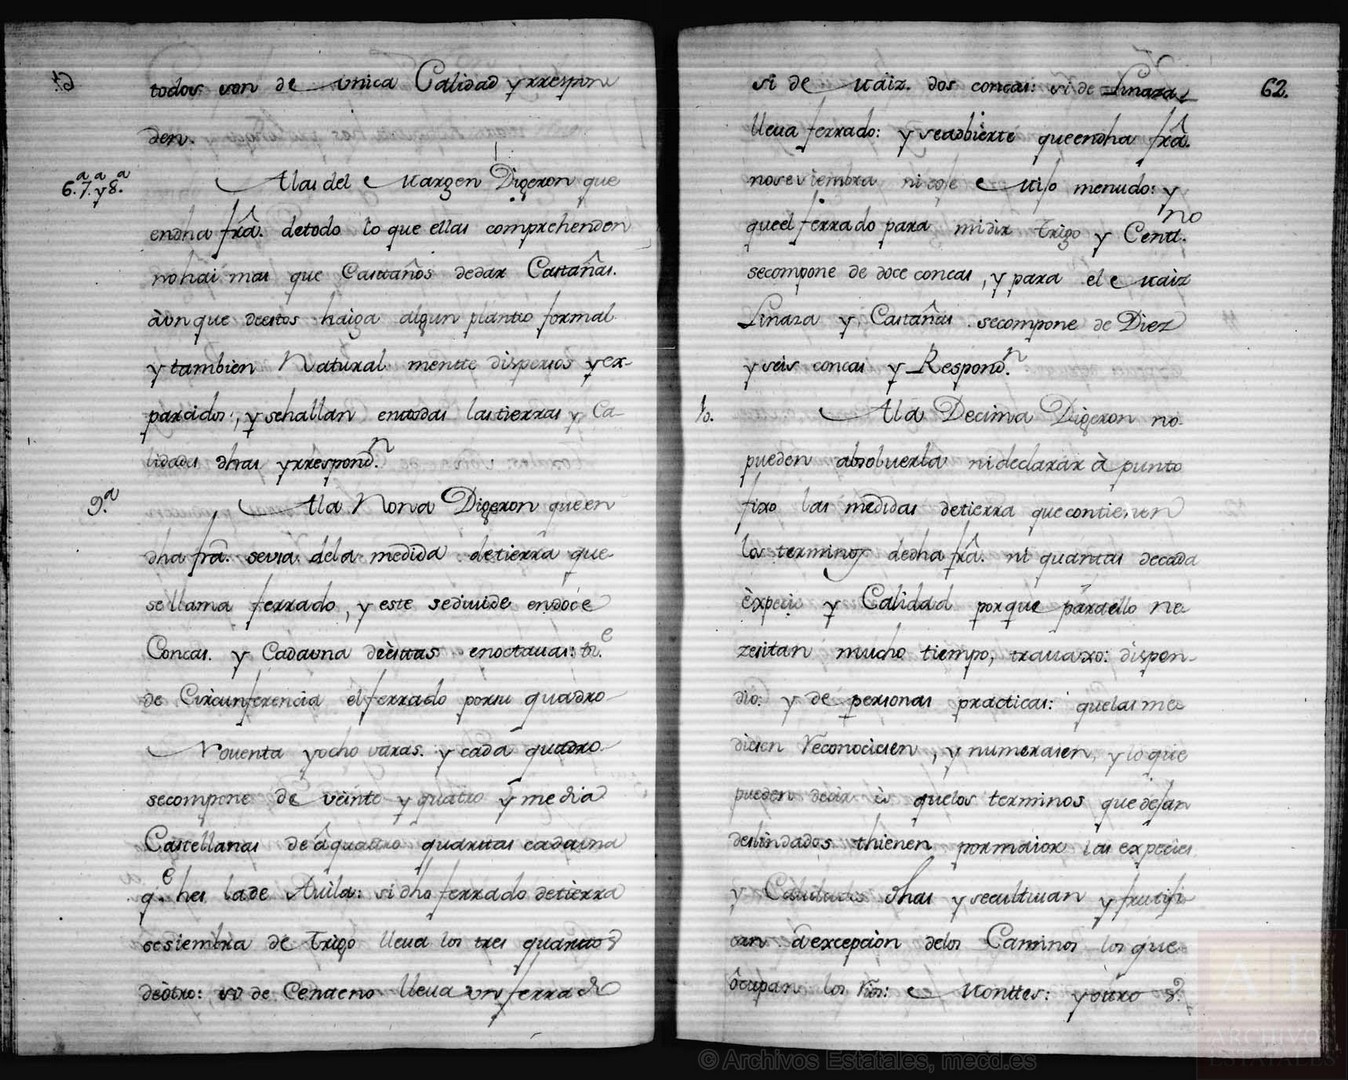 todos son de unica Calidad y rrespon
den.
6.ª 7.ª y 8.ª
A las del Margen Digeron que
en dha frâ. de todo lo que ellas comprehenden
no hai mas que Castaños de dar Castañas.
àunque destos haiga algun plantio formal
y tambien Natural mentte dispersos y ex-
parcidos:, y se hallan en todas las tierras y Ca-
lidades dhas y rrespond.n
9.ª
A la Nona Digeron que en
dha frâ. se usa de la medida de tierra que
se llama ferrado, y este se diuide en dòce
Concas. y Cada una de èstas en octauas: tt.e
de Circunferencia el ferrado por su quadro
Nouenta y ocho varas. y cada quadro
se compone de veinte y quatro y media
Castellanas de â quattro quartas cada una
q.e hes la de Auila: si dho ferrado de tierra
se siembra de trigo lleua los tres quartos
de òtro: si de Centeno lleua un ferrado
62.
si de Maiz. dos concas: si de Linaza
lleua ferrado: y se adbierte que en dha frâ.
no se siembra ni coje Mijo menudo: y
que el ferrado para midir trigo y Centt.no
se compone de doce concas, y para el Maiz
Linaza y Castañas se compone de Diez
y seis concas y Respond.n
10.
A la Decima Digeron no
pueden absoluerla ni declarar à punto
fixo las medidas de tierra que contienen
los terminos de dha frâ. ni quantas de cada
èxpecie y Calidad porque para ello ne
zesitan mucho tiempo, trauaxo: dispen-
dio: y de personas practicas: que las mi
diesen Reconociesen, y numerasen, y lo que
pueden decir ès que los terminos que dejan
deslindados thienen por maior las expecies
y Calidades dhas y se cultiuan y frutifi
can à excepciòn de los Caminos los que
òcupan los Rios: Monttes: y òtro
© Archivos Estatales, mecd.es
ARCHIVOS
ESTATALES